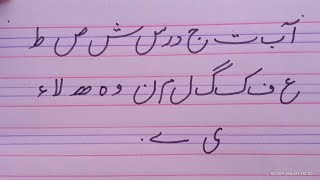 آ ب ت ج د ر س ش ص ط
ع ف ک گ ل م ن و ہ ھ لا ء
ی ے۔